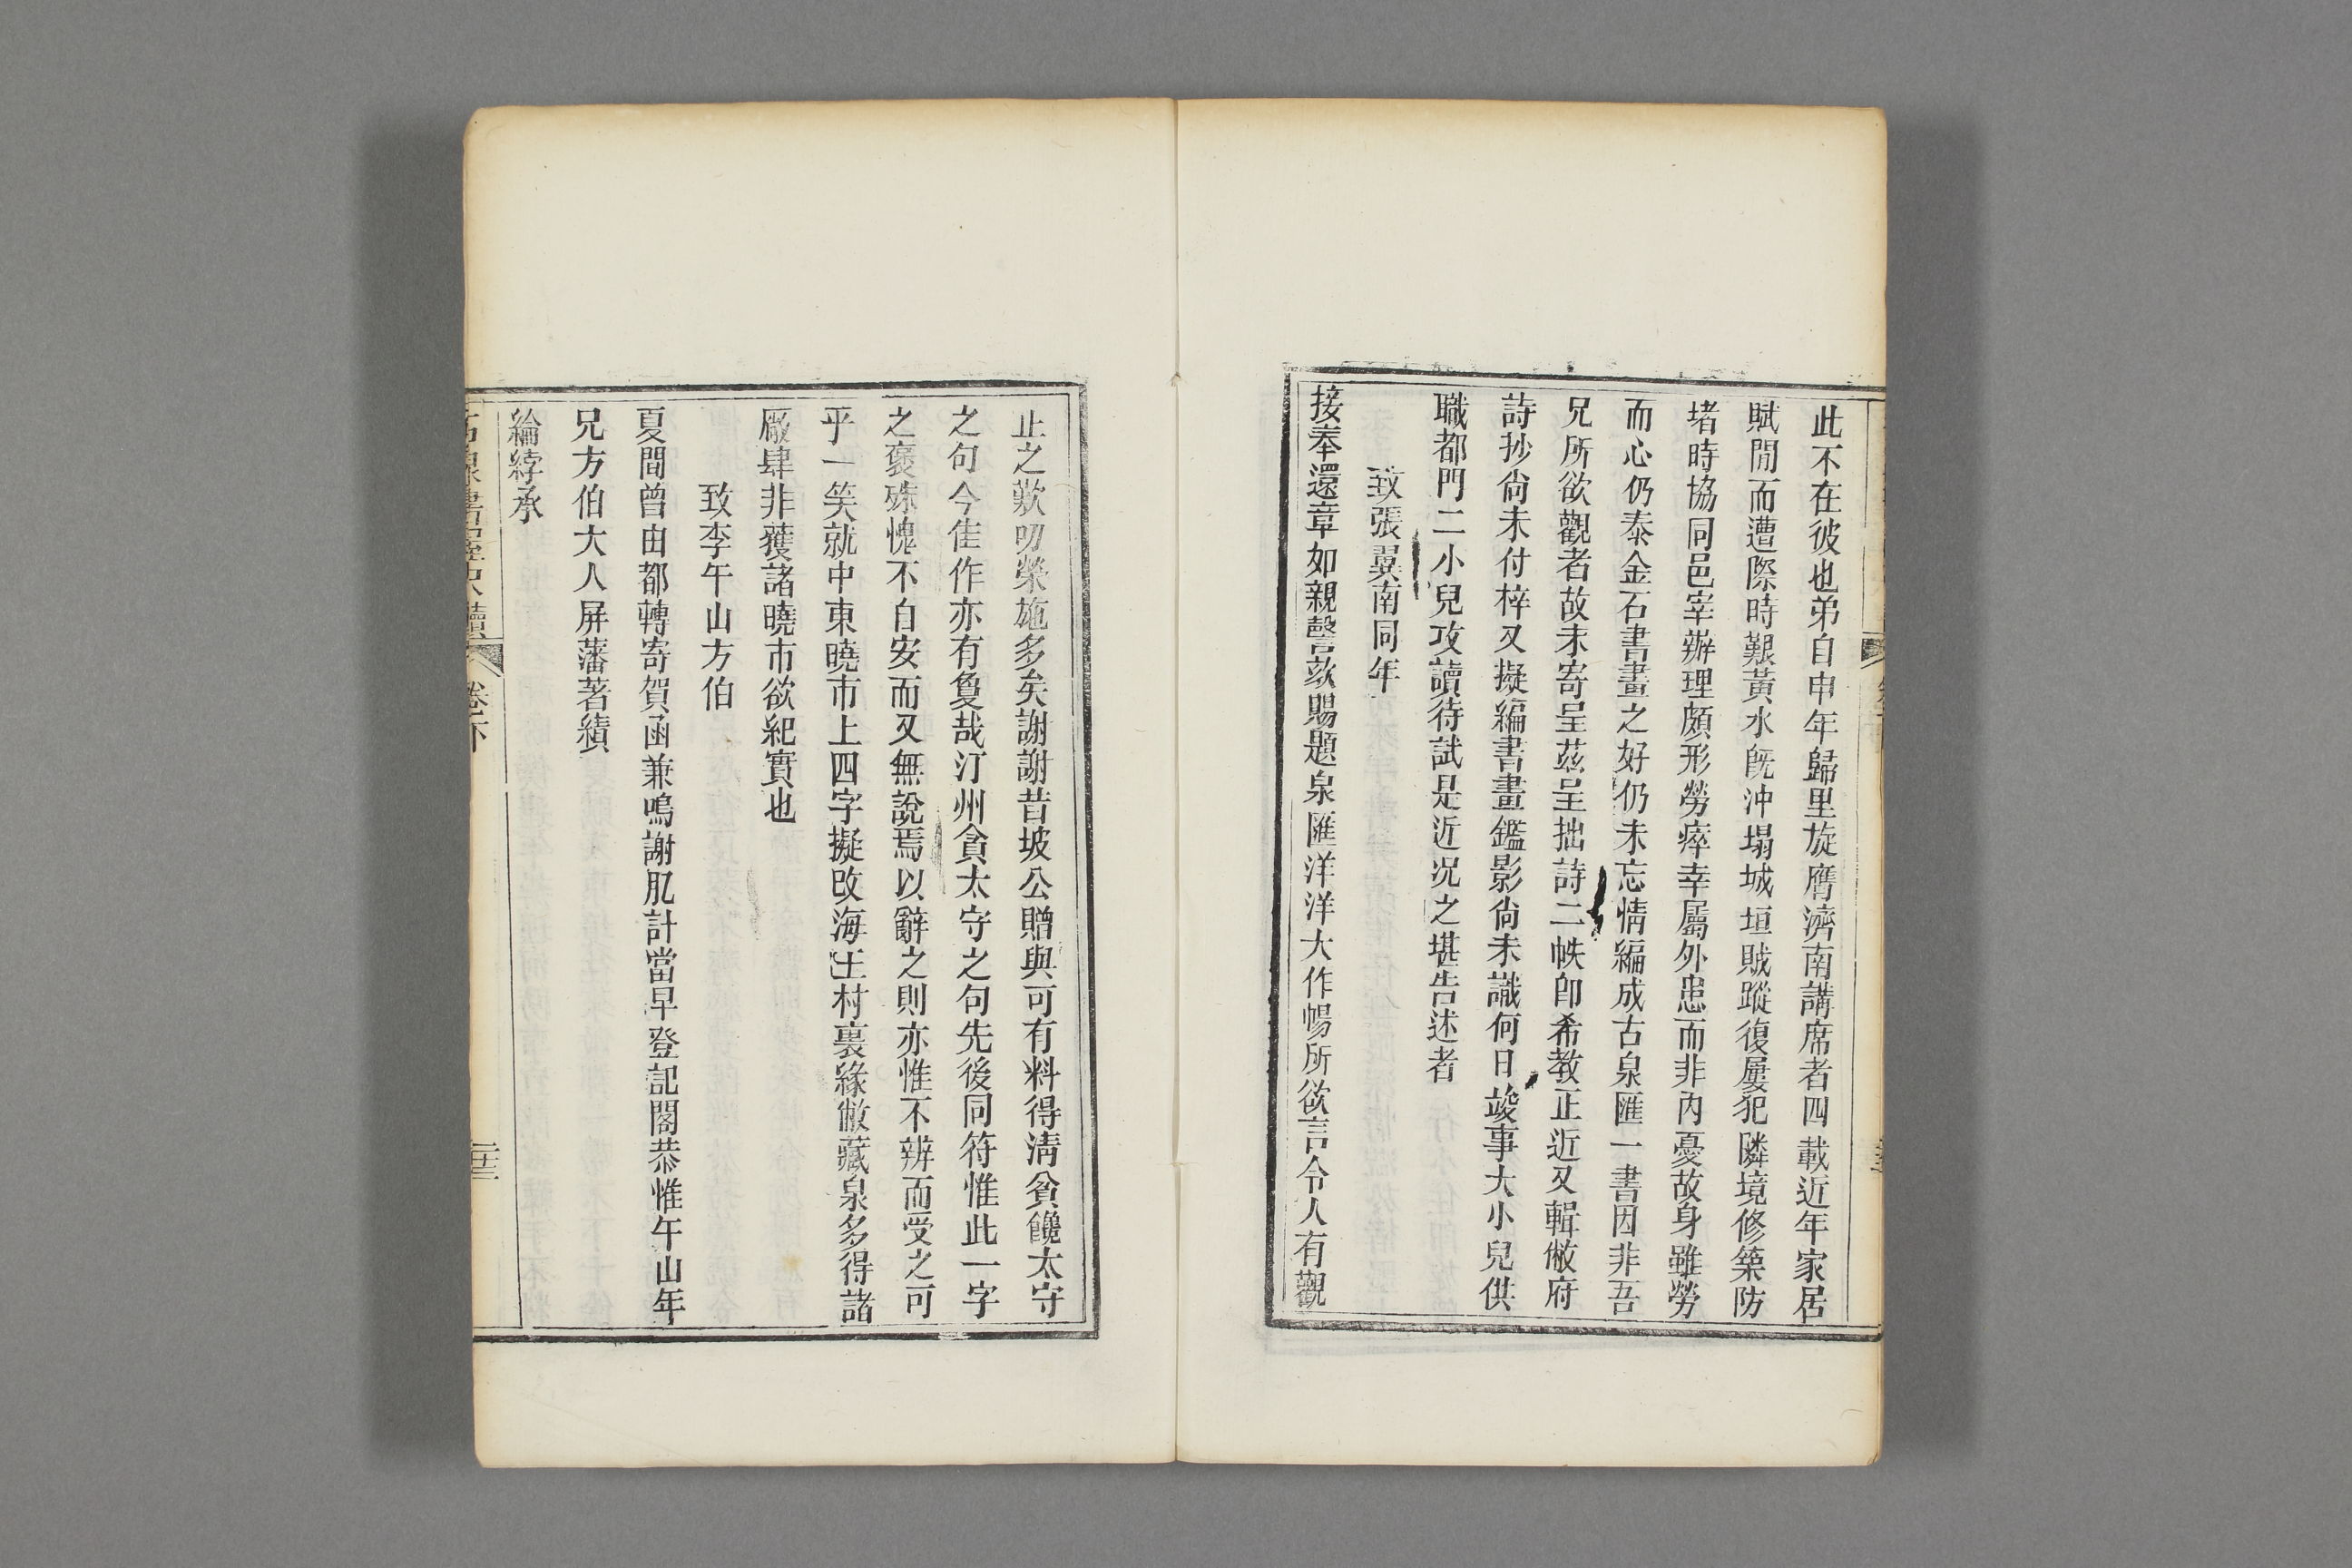 此不在彼也弟自申年歸里旋膺濟南講席者四載近年家居
賦閒而遭際時艱黃水旣沖塌城垣賊蹤復屢犯隣境修築防
堵時協同邑宰辦理頗形勞瘁幸屬外患而非內憂故身雖勞
而心仍泰金石書畫之好仍未忘情編成古泉匯一書因非吾
兄所欲觀者故未寄呈茲呈拙詩二帙卽希教正近又輯敝府
詩抄尙未付梓又擬編書畫鑑影尙未識何日竣事大小兒供
職都門二小兒攻讀待試是近况之堪告述者
致張翼南同年
接奉還章如親謦欬賜題泉匯洋洋大作暢所欲言令人有觀
止之歎叨榮施多矣謝謝昔坡公贈與可有料得清貧饞太守
之句今佳作亦有敻哉汀州貪太守之句先後同符惟此一字
之褒殊愧不自安而又無說焉以辭之則亦惟不辨而受之可
乎一笑就中東曉市上四字擬改海王村裏緣敝藏泉多得諸
廠肆非獲諸曉市欲紀實也
致李午山方伯
夏間曾由都轉寄賀函兼鳴謝肊計當早登記閣恭惟午山年
兄方伯大人屏藩著績
綸綍承
卷下